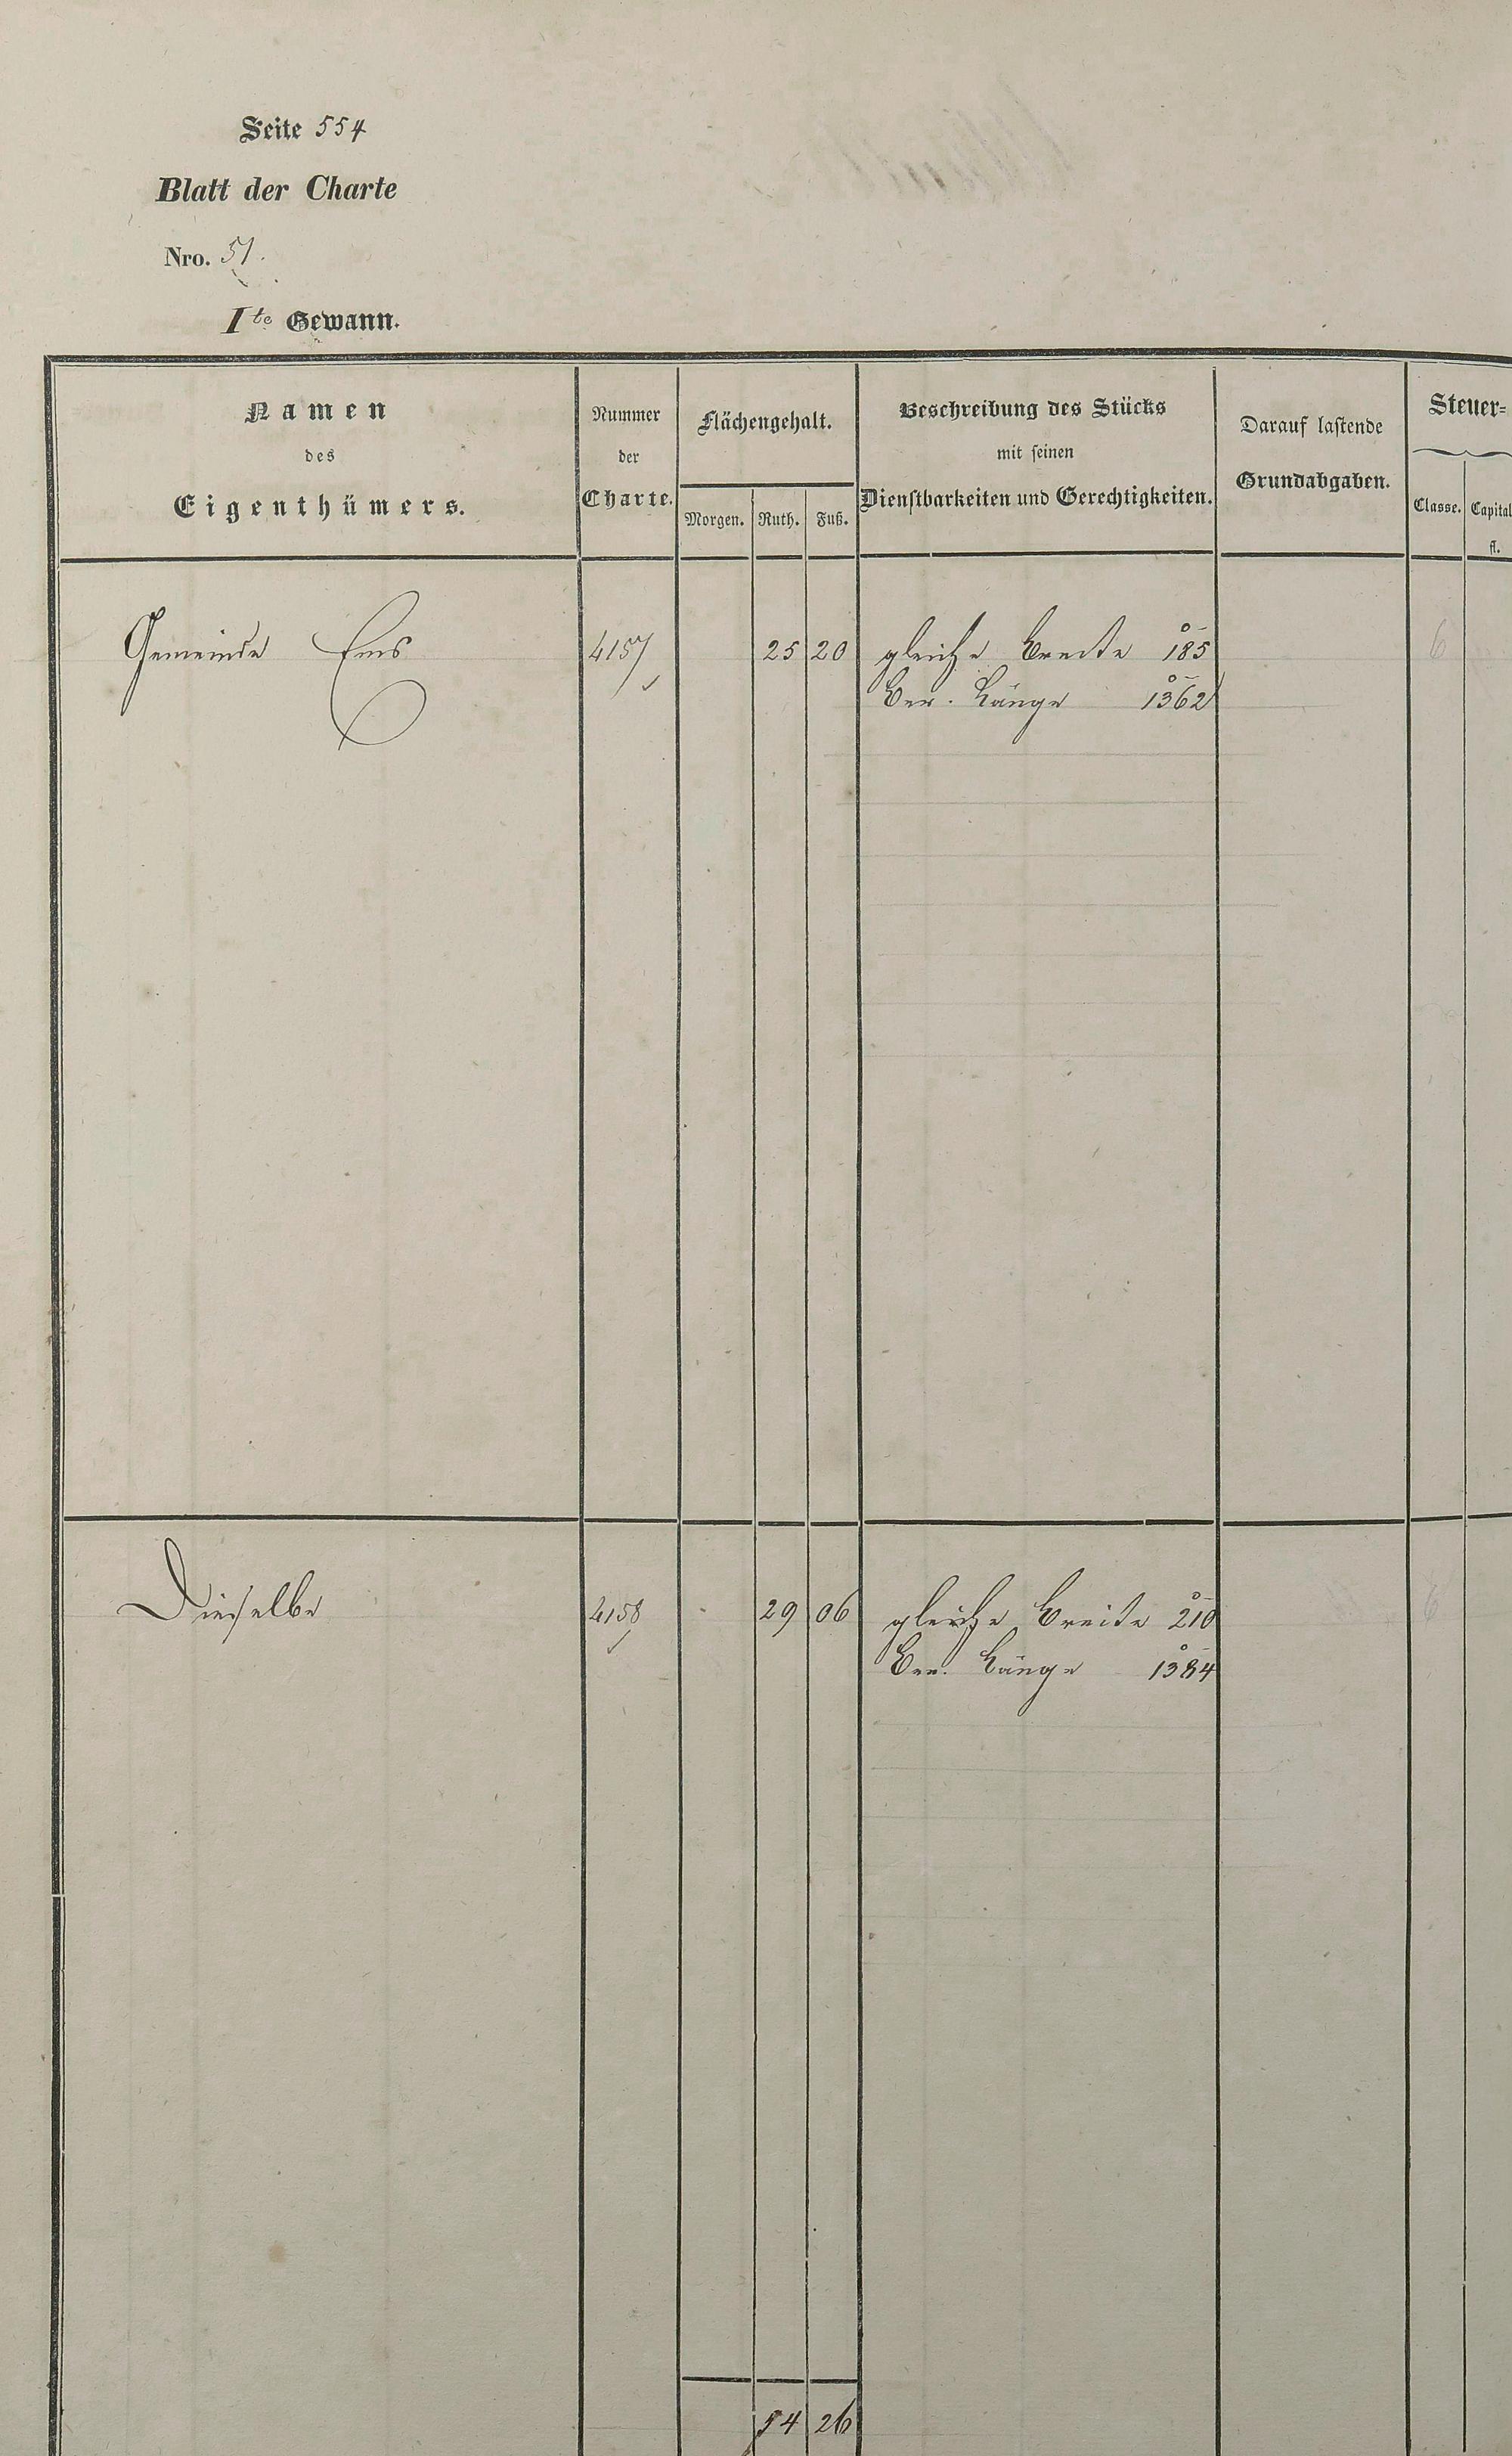 Seite 554
Blatt der Charte
Nro. 51.
Ite Gewann.
Namen
des
Eigenthümers.
Nummer
der
Charte.
Flächengehalt.
Morgen. Ruth. Fuß.
Beschreibung des Stücks
mit seinen
Dienstbarkeiten und Gerechtigkeiten.
Darauf lastende
Grundabgaben.
Steuer=
Classe. Capital
fl.
Gemeinde Ems 4157 25 20 gleiche Breite 185 6
Ber. Länge 1362
Dieselbe 4158 29 06 gleiche Breite 210 6
Ber. Länge 1384
54 26